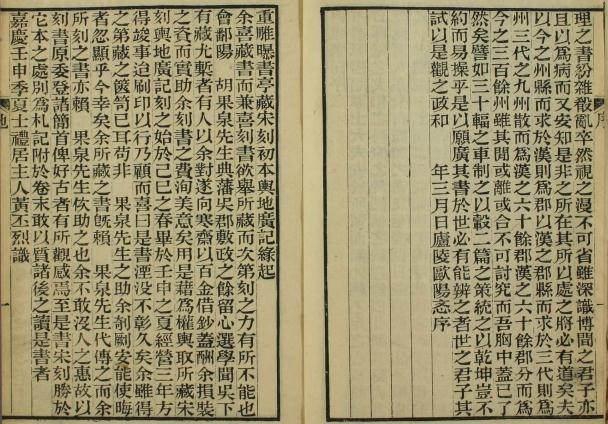 序
理之書紛雜殽亂卒然視之漫不可省雖深識博聞之君子亦
且以為病而又安知是非之所在其所以處之將必有道矣夫
以今之州縣而求於漢則為郡以漢之郡縣而求於三代則為
州三代之九州散而為漢之六十餘郡漢之六十餘郡分而為
今之三百餘州雖其閒或離或合不可討究而吾胸中蓋已了
然矣譬如三十輻之車制之以轂二篇之策統之以乾坤豈不
約而易操乎是以願廣其書於世必有能辨之者世之君子其
試以是觀之政和　年三月日廬陵歐陽忞序
重雕曝書亭藏宋刻初本輿地廣記緣起
余喜藏書而兼喜刻書欲舉所藏而次第刻之力有所不能也
會鄱陽　胡果泉先生典藩吳郡敷政之餘留心選學聞吳下
有藏尤槧者有人以余對遂向寒齋以百金借鈔蓋酬余損裝
之資而實助余刻書之費洵美意矣用是藉為權輿取所藏宋
刻輿地廣記刻之始於己巳之春畢於壬申之夏經營三年方
得竣事迨刷印以行乃顧而喜曰是書湮沒不彰久矣余雖得
之第藏之篋笥已耳苟非　果泉先生之助余剞劂安能使晦
者忽顯乎今幸矣余所藏之書旣賴　果泉先生代傳之而余
所刻之書亦賴　果泉先生佽助之也余不敢沒人之惠故以
刻書原委登諸簡首俾好古者有所觀感焉至是書宋刻勝於
它本之處別為札記附於卷末敢以質諸後之讀是書者
嘉慶壬申季夏士禮居主人黃丕烈識
地